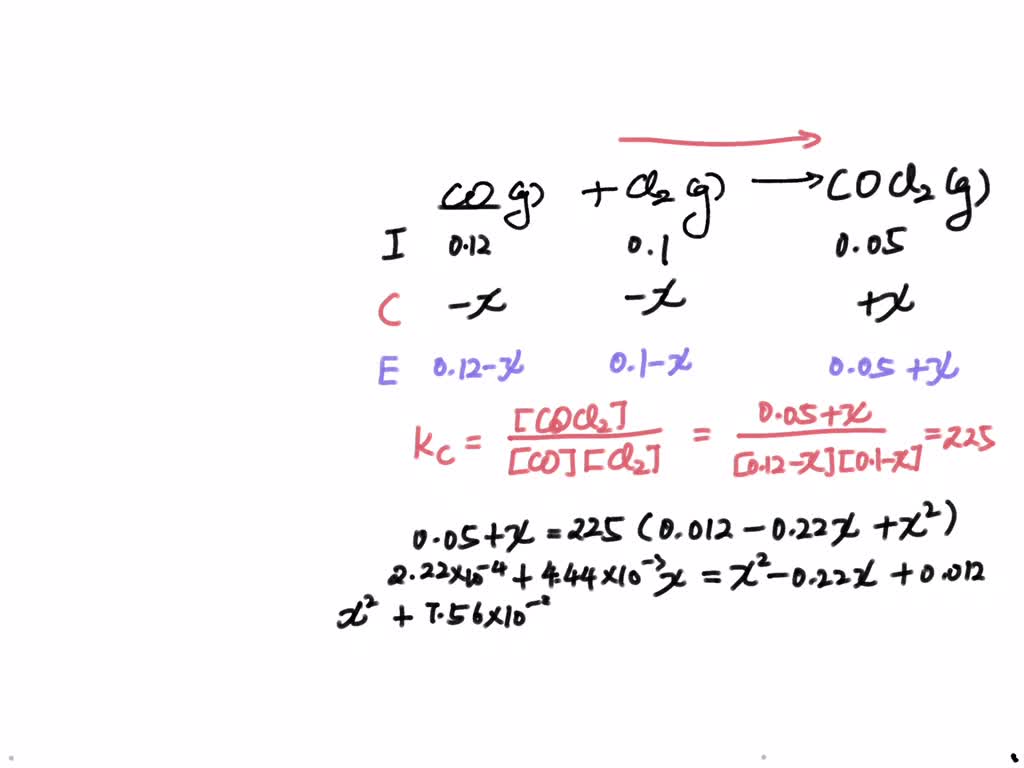 CO(g) + Cl₂(g) → COCl₂(g)
I 0.12 0.1 0.05
C -x -x +x
E 0.12-x 0.1-x 0.05+x
Kc = [COCl₂] / [CO][Cl₂] = 0.05+x / [0.12-x][0.1-x] = 225
0.05+x = 225 (0.012 - 0.22x + x²)
2.22×10⁻⁴ + 4.44×10⁻³x = x² - 0.22x + 0.012
x² + 7.56×10⁻²